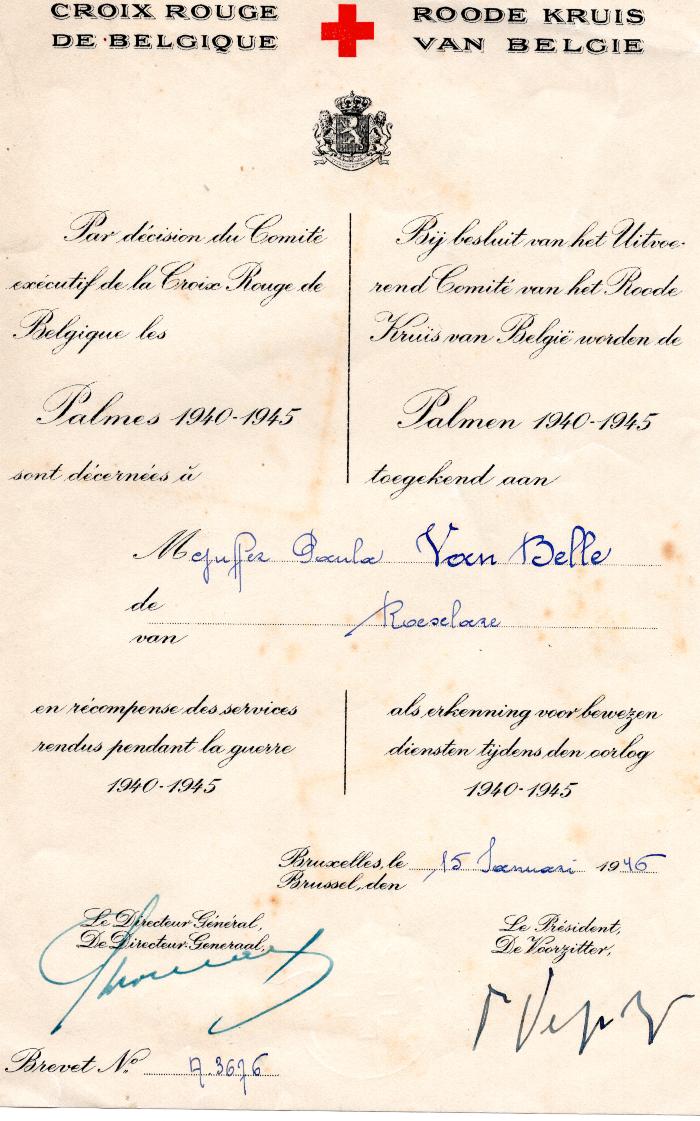 CROIX ROUGE
DE BELGIQUE
ROODE KRUIS
VAN BELGIE
Par décision du Comité
exécutif de la Croix Rouge de
Belgique les
Palmes 1940-1945
sont décernées à
Bij besluit van het Uitvoe-
rend Comité van het Roode
Kruis van België worden de
Palmen 1940-1945
toegekend aan
Mejuffer Paula Van Belle
de
van
Roeselare
en récompense des services
rendus pendant la guerre
1940-1945
als erkenning voor bewezen
diensten tijdens den oorlog
1940-1945
Bruxelles, le
Brussel, den
15 Januari 1946
Le Directeur Général,
De Directeur-Generaal,
Le Président,
De Voorzitter,
Brevet Nº A.3676